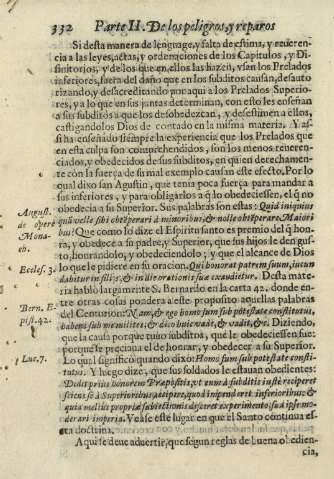 332 Parte II. De los peligros, y reparos
Si desta manera de lenguage, y falta de estima, y reueren-
cia a las leyes, actas, y ordenaciones de los Capitulos, y Di-
finitorios, y de los que en ellos las hazen, vsan los Prelados
inferiores, fuera del daño que en los subditos causan, desauto
rizando, y desacreditando por aqui a los Prelados Superio-
res, y a lo que en sus juntas determinan, con esto les enseñan
a sus subditos a que los desobedezcan, y desestimen a ellos,
castigandolos Dios de contado en la misma materia. Y as-
si ha enseñado siempre la experiencia: que los Prelados que
en esta culpa son comprehendidos, son los menos reueren-
ciados, y obedecidos de sus subditos, en quien derechamen-
te con la fuerça de su mal exemplo causan este efecto. Por lo
qual dixo san Agustin, que tenia poca fuerça para mandar a
sus inferiores, y para obligarlos a q̃ lo obedeciessen, el q̃ no
obedecia a su Superior. Sus palabras son estas: Quid iniquius
quã velle sibi obtẽperari à minoribus, & nolle obtẽperare Maiori
bus? Que como lo dize el Espiritu santo es premio del q̃ hon-
ra, y obedece a su padre, y Superior, que sus hijos le den gus-
to, honrandolo, y obedeciendolo; y que el alcance de Dios
lo que le pidiere en su oracion. Qui honorat patrem suum, iucun
dabitur in filijs, & in die orationis suæ exaudietur. Desta mate-
ria hablo largamente S. Bernardo en la carta 42. donde en-
tre otras cosas pondera a este proposito aquellas palabras
del Centurion: Nam, & ego homo sum sub potestate constitutus,
habens sub me milites, & dico huic vade, & vadit, &c. Diziendo,
que la causa porque tuuo subditos, que le obedeciessen fue:
porque se preciaua el de honrar, y obedecer a su Superior.
Lo qual significò quando dixo: Homo sum sub potestate consti-
tutus. Y luego dize, que sus soldados le estauan obedientes:
ta doctrina.
Aqui se deue aduertir, que segun reglas de buena obedien-
cia,
August.
de opere
Mona-
ch.
Eccles. 3.
Bern. E-
pist. 42.
Luc. 7.